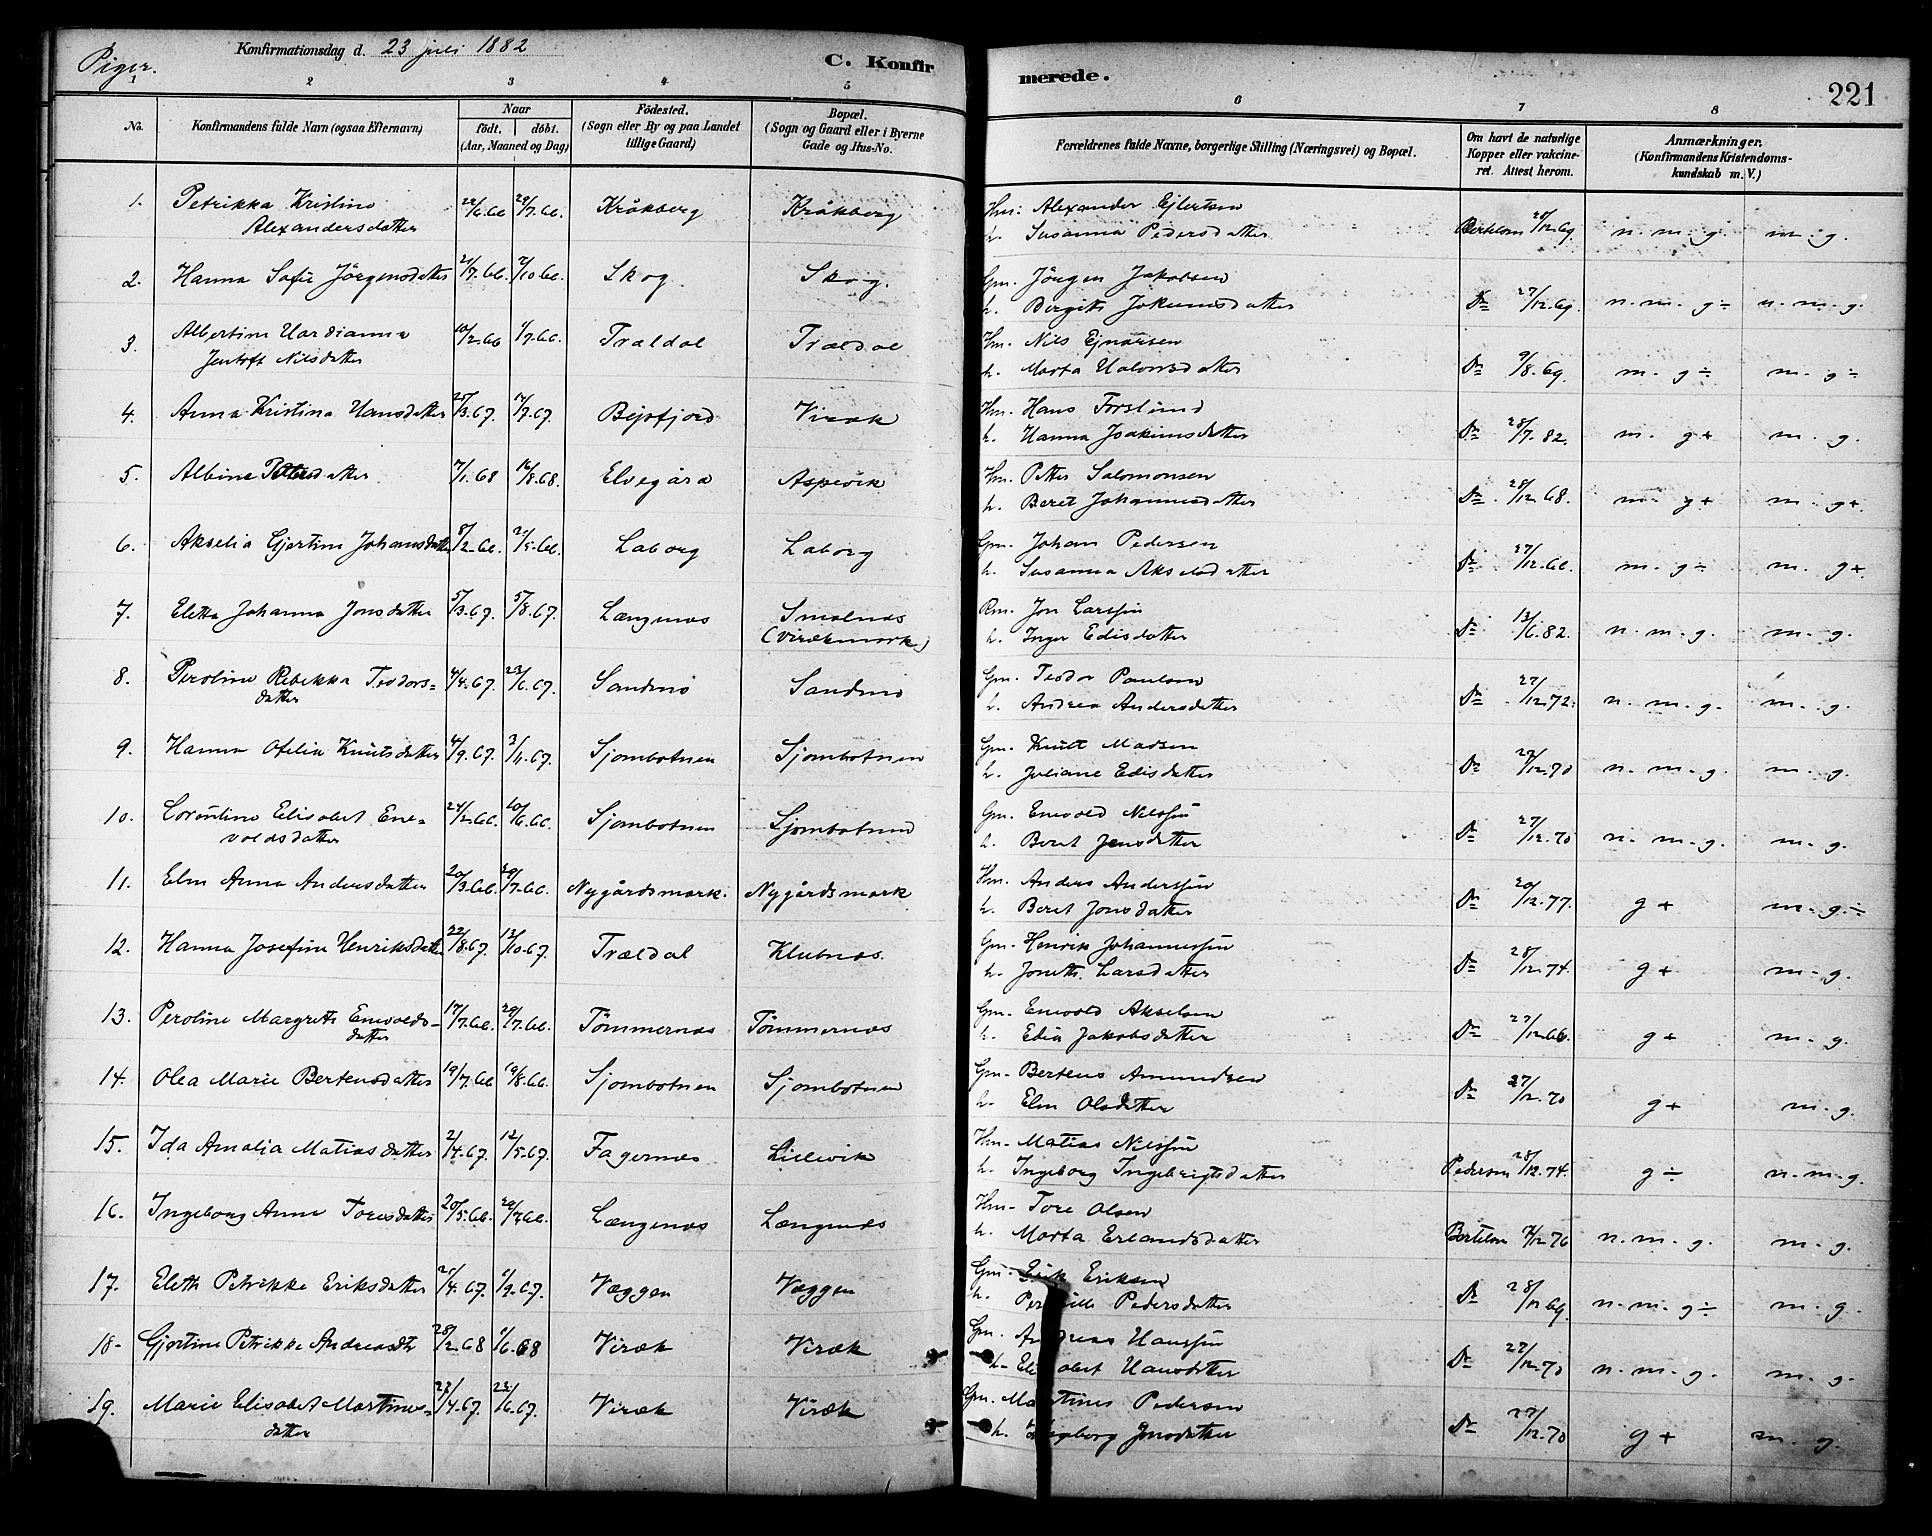 Piger.
Konfirmationsdag d. 23 juli 1882
C. Konfirmerede.
221
1 2 3 4 5 6 7 8
No.
Konfirmandens fulde Navn (ogsaa Efternavn)
Naar
födt. | döbt.
(Aar, Maaned og Dag)
Födested.
(Sogn eller By og paa Landet
tillige Gaard)
Bopæl.
(Sogn og Gaard eller i Byerne
Gade og Hus-No.
Forældrenes fulde Navne, borgerlige Stilling (Næringsvei) og Bopæl.
Om havt de naturlige
Kopper eller vakcine-
ret. Attest herom.
Anmærkninger.
(Konfirmandens Kristendoms-
kundskab m. V.)
1. Petrikka Kristine 22/6.66 29/7.66. Kråkberg Kråkberg Hm: Alexander Ejlertsen
Alexandersdatter h. Susanna Pedersdatter Bertelsen 20/12.69. n. m. g. m. g.
2. Hanna Sofie Jörgensdatter 21/7.66. 7/10.66. Skog Skog. Gm. Jörgen Jakobsen
h. Bergitt Jokumsdatter Do 27/12.69. n. m. g ÷ n. m. g.
3. Albertine 10/2.66 1/7.66. Trældal Trældal Hm. Nils Ejnarsen
Jentoft Nilsdatter h. Marta Do 9/8.69. m. g ÷ m. g ÷
4. Anna Kristina Hansdatter 25/3.67. 7/7.67. Bejsfjord Virak Hm. Hans Forslund
h. Hanna Joakimsdatter Do 28/7.82. m. g + m. g.
5. Albine Petersdatter 7/1.68 16/8.68. Elvegård Aspevik Hm. Petter Salomonsen
h. Beret Johannesdatter Do 28/12.68. m. g + m. g +
6. Akselia Gjertine Johansdatter 8/2.66. 21/5.66. Laborg Laborg Gm. Johan Pedersen
h. Susanna Akselsdatter Do 27/12.66. m. g ÷ m. g +
7. Eletta Johanna Jonsdatter 5/3.67. 5/8.67. Længenæs Smalnæs Rm. Jon Larssen
(Virækmark) h. Inger Edisdatter Do 13/6.82. n. m. g. m. g.
8. Peroline Rebekka Teodors- 4/4.67. 23/6.67. Sandmo Sandmo Gm. Teodor Paulsen
datter h. Andrea Andersdatter Do 27/12.72. n. m. g. m. g.
9. Hanna Ofelia Knutsdatter 4/9.67. 3/11.67. Sjombotnen Sjombotnen Gm. Knut Madsen
h. Juliane Edisdatter Do 27/12.70 n. m. g. m. g.
10. Lorentine Elisabet Ene- 24/2.66. 10/6.66. Sjombotnen Sjombotnen Gm. Enevold Nilssen
voldsdatter h. Beret Jensdatter Do 27/12.70 n. m. g. m. g.
11. Elen Anna Andersdatter 20/3.66. 29/7.66. Nygårdsmark. Nygårdsmark Hm. Anders Anderssen
h. Beret Jonsdatter Do 20/12.77. g + m. g. ÷
12. Hanna Josefine Henriksdatter 22/8.67. 13/10.67. Trældal Klubnæs. Gm. Henrik Johannessen
h. Joneth. Larsdatter Do 28/12.74. g + m. g.
13. Peroline Margrete Enevolds- 17/7.66. 29/7.66. Tömmernæs Tömmernæs Gm. Enevold Akselsen
datter h. Edia Jakobsdatter Do 27/12.66. g + m. g.
14. Olea Marie Berteusdatter 19/7.66 19/8.66. Sjombotnen Sjombotnen Gm. Berteus Amundsen
h. Elen Olsdatter Do 27/12.70 g + m. g.
15. Ida Amalia Matiasdatter 2/4.67. 12/5.67. Fagernæs Lillevik Hm. Matias Nilssen
h. Ingeborg Ingebrigtsdatter Pedersen 28/12.74. g ÷ n. m. g.
16. Ingeborg Anne Toresdatter 20/5.66. 29/7.66. Længenæs Længenæs Hm. Tore Olsen
h. Marta Erlandsdatter Bertelsen 7/12.76 n. m. g. m. g.
17. Eleth Petrikke Eriksdatter 21/4.67. 1/9.67. Væggen Væggen Gm. Erik Eriksen
h. Pernille Pedersdatter Do 28/12.69. n. m. g ÷ m. g.
18. Gjertine Petrikke Andreasdtr 28/2.68 1/6.68 Viræk Viræk Gm. Andreas Hanssen
h. Elisabet Hansdatter Do 27/12.70 n. m. g. m. g.
19. Marie Elisabet Martines- 27/4.67. 23/6.67. Viræk Viræk Gm. Martines Pedersen
datter h. Ingeborg Jonsdatter Do 27/12.70 g + m. g.